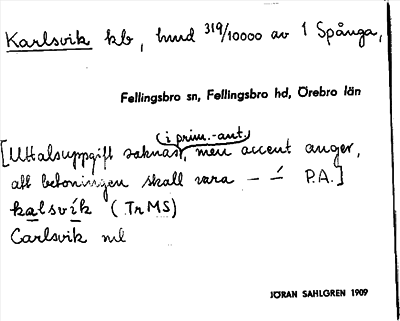 Karlsvik kb, hmd 319/10000 av 1 Spånga,
Fellingsbro sn, Fellingsbro hd, Örebro län
(i prim.-ant.)
[Uttalsuppgift saknas, men accent anger,
att betoningen skall vara – –́ P.A.]
kalsvík (Tr MS)
Carlsvik ml
JÖRAN SAHLGREN 1909